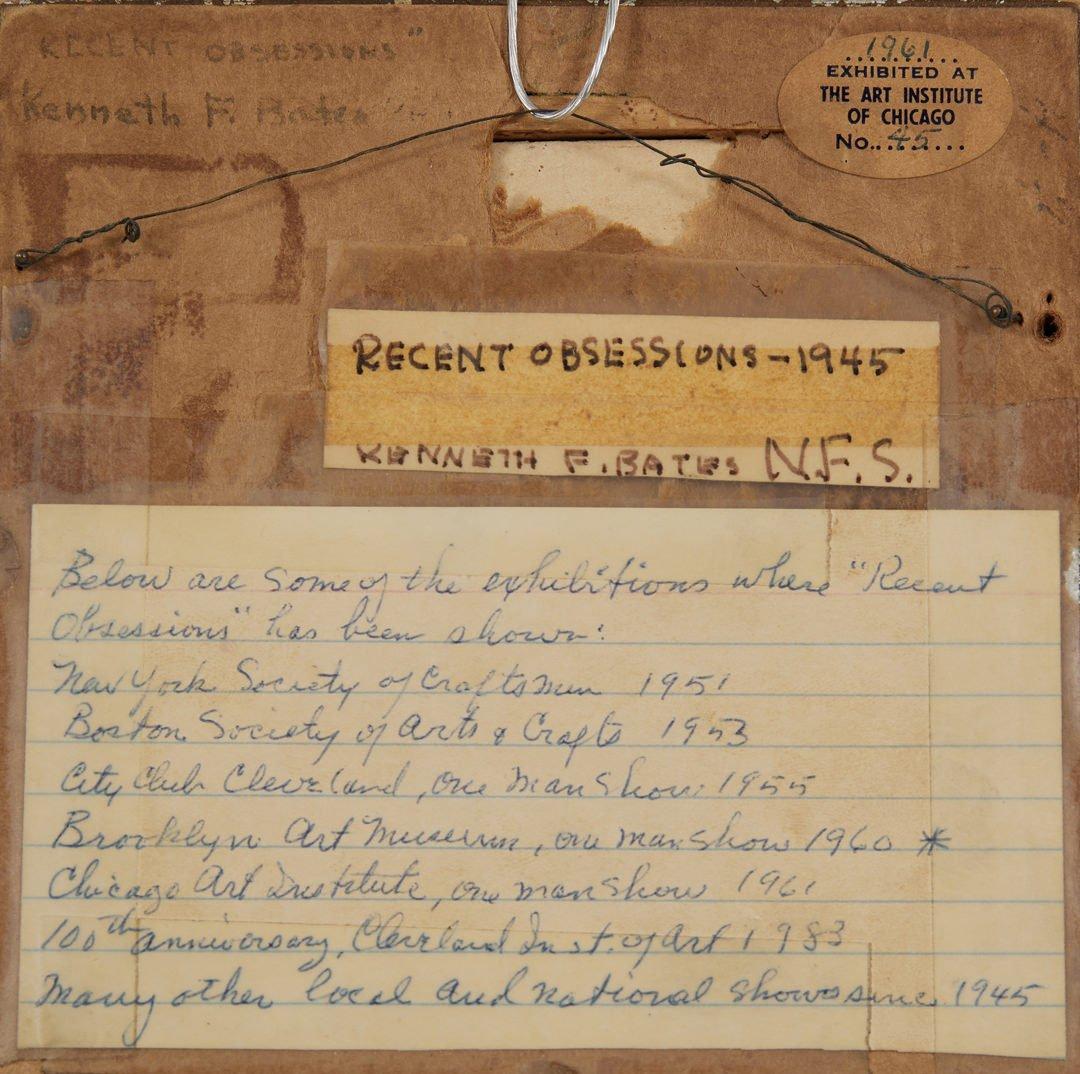 RECENT OBSESSIONS"
Kenneth F. Bates
1961
EXHIBITED AT
THE ART INSTITUTE
OF CHICAGO
No. 45
RECENT OBSESSIONS - 1945
KENNETH F. BATES N.F.S.
Below are some of the exhibitions where "Recent
Obsessions" has been shown:
New York Society of Craftsmen 1951
Boston Society of Arts & Crafts 1953
City Club Cleveland, one man show 1955
Brooklyn Art Museum, one man show 1960 *
Chicago Art Institute, one man show 1961
100th anniversary, Cleveland Inst. of Art 1983
Many other local and national shows since 1945